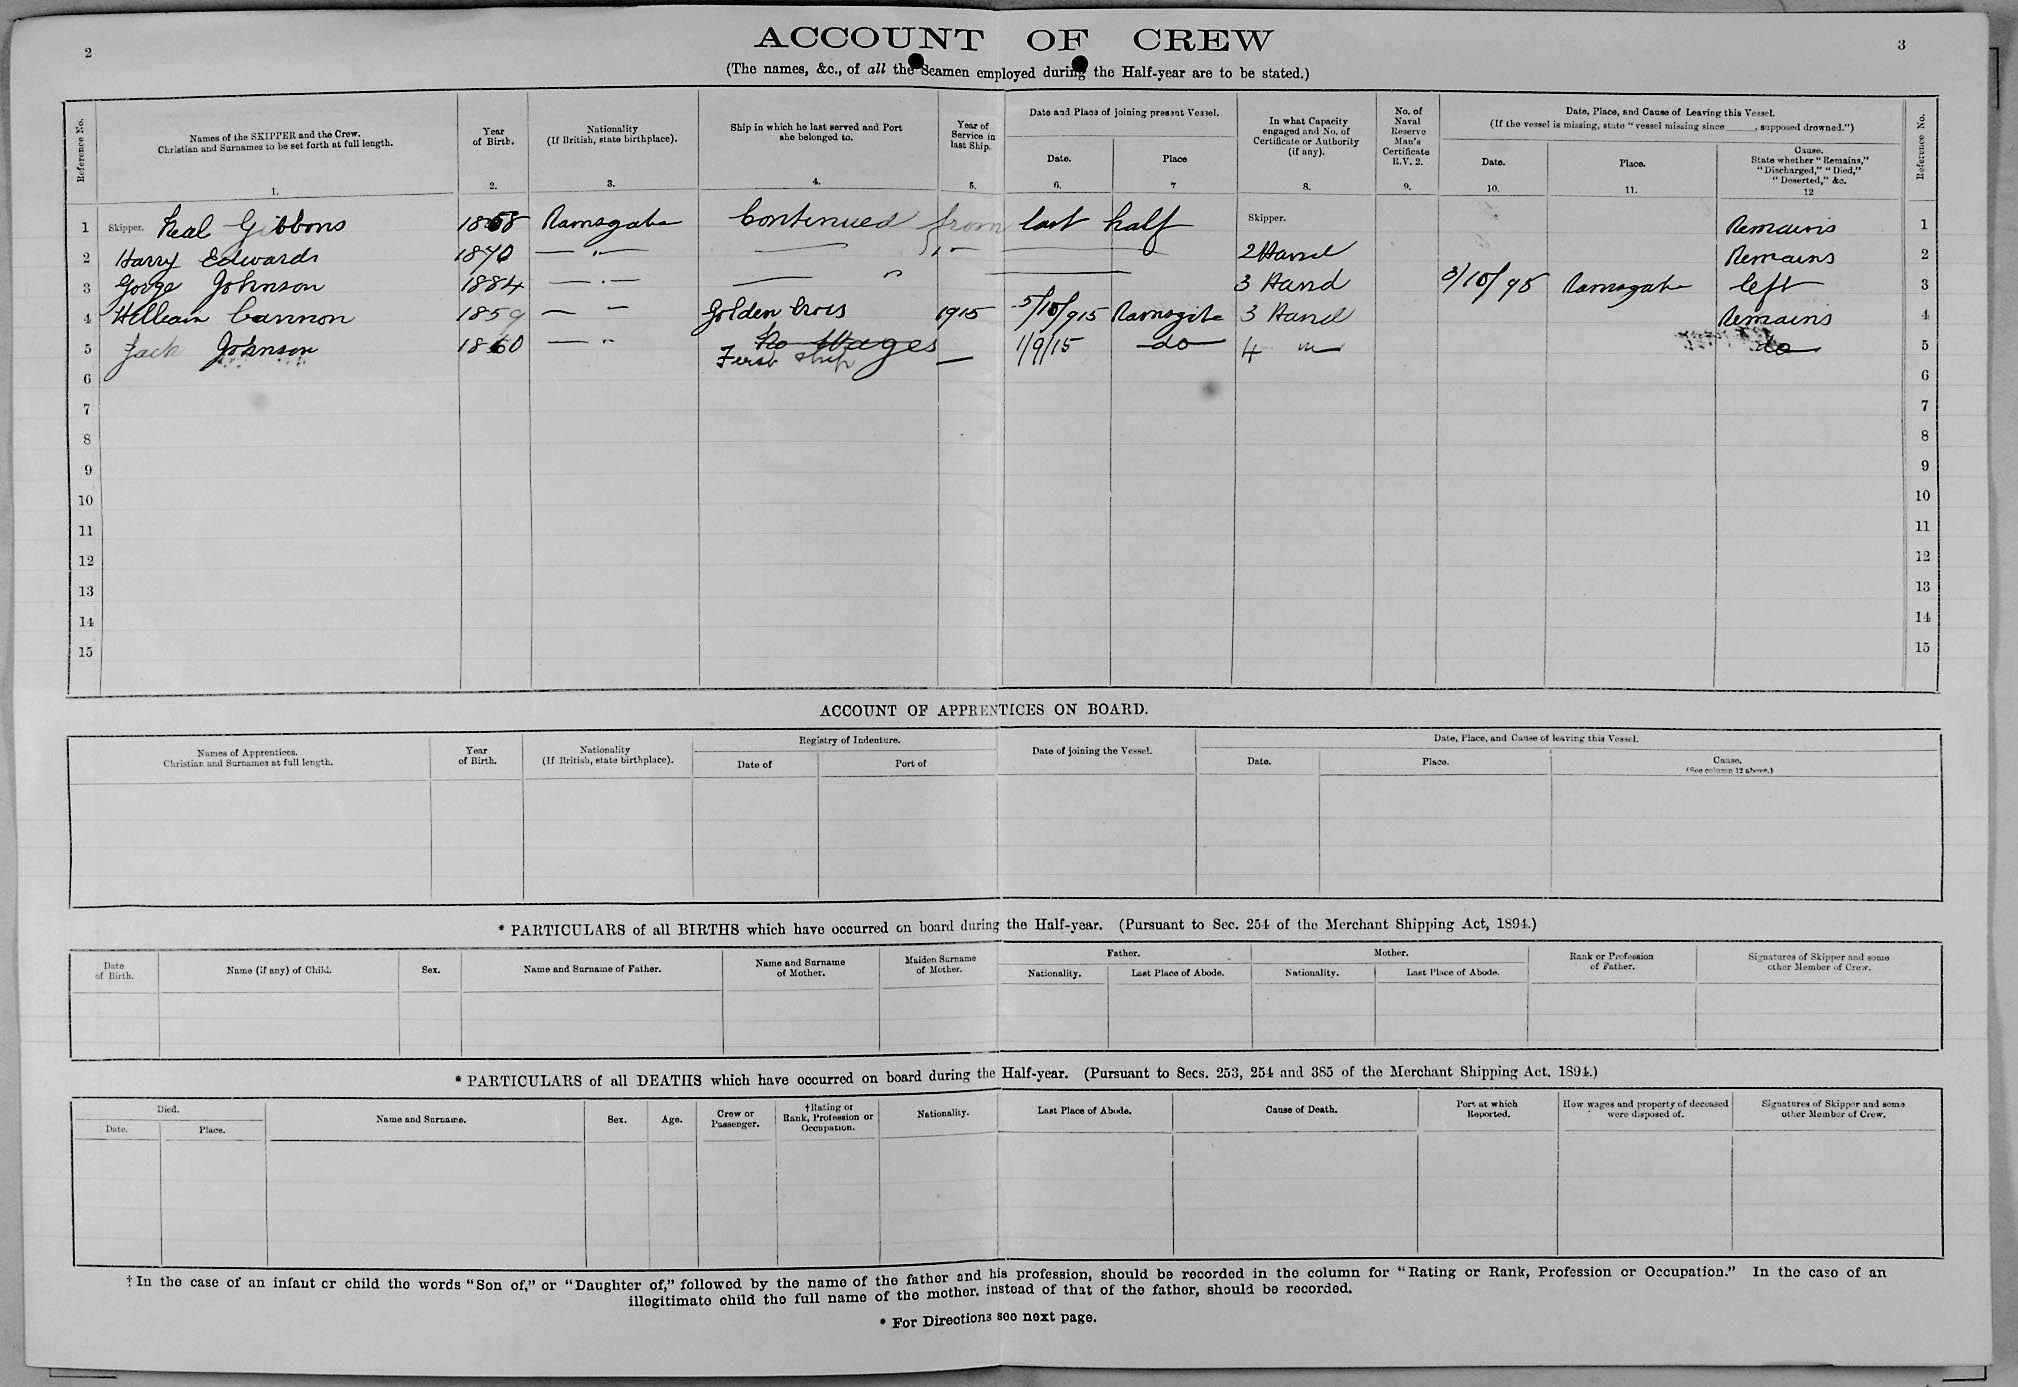 2
3
ACCOUNT OF CREW
(The names, &c., of all the Seamen employed during the Half-year are to be stated.)
Reference No.
Names of the SKIPPER and the Crew.
Christian and Surnames to be set forth at full length.
1.
Year
of Birth.
2.
Nationality
(If British, state birthplace).
3.
Ship in which he last served and Port
she belonged to.
4.
Year of
Service in
last Ship.
5.
Date and Place of joining present Vessel.
Date.
6.
Place
7
In what Capacity
engaged and No. of
Certificate or Authority
(if any).
8.
No. of
Naval
Reserve
Man's
Certificate
R.V. 2.
9.
Date, Place, and Cause of Leaving this Vessel.
(If the vessel is missing, state "vessel missing since ____, supposed drowned.")
Date.
10.
Place.
11.
Cause.
State whether "Remains,"
"Discharged," "Died,"
"Deserted," &c.
12
Reference No.
1 Skipper. Neal Gibbons 1868 Ramsgate Continued from last half Skipper. Remains 1
2 Harry Edwards 1870 — " — 2 Hand Remains 2
3 Gorge Johnson 1884 — " — 3 Hand 3/10/95 Ramsgate left 3
4 William Cannon 1859 — — Golden Cross 1915 5/10/915 Ramsgate 3 Hand Remains 4
5 Jack Johnson 1860 — " No Wages 1/9/15 do 4 do 5
First Ship —
6 6
7 7
8 8
9 9
10 10
11 11
12 12
13 13
14 14
15 15
ACCOUNT OF APPRENTICES ON BOARD.
Names of Apprentices.
Christian and Surnames at full length.
Year
of Birth.
Nationality
(If British, state birthplace).
Registry of Indenture.
Date of
Port of
Date of joining the Vessel.
Date, Place, and Cause of leaving this Vessel.
Date.
Place.
Cause.
(See column 12 above.)
* PARTICULARS of all BIRTHS which have occurred on board during the Half-year. (Pursuant to Sec. 254 of the Merchant Shipping Act, 1894.)
Date
of Birth.
Name (if any) of Child.
Sex.
Name and Surname of Father.
Name and Surname
of Mother.
Maiden Surname
of Mother.
Father.
Nationality.
Last Place of Abode.
Mother.
Nationality.
Last Place of Abode.
Rank or Profession
of Father.
Signatures of Skipper and some
other Member of Crew.
* PARTICULARS of all DEATHS which have occurred on board during the Half-year. (Pursuant to Secs. 253, 254 and 385 of the Merchant Shipping Act, 1894.)
Died.
Date.
Place.
Name and Surname.
Sex.
Age.
Crew or
Passenger.
†Rating or
Rank, Profession or
Occupation.
Nationality.
Last Place of Abode.
Cause of Death.
Port at which
Reported.
How wages and property of deceased
were disposed of.
Signatures of Skipper and some
other Member of Crew.
† In the case of an infant or child the words "Son of," or "Daughter of," followed by the name of the father and his profession, should be recorded in the column for "Rating or Rank, Profession or Occupation." In the case of an
illegitimate child the full name of the mother, instead of that of the father, should be recorded.
* For Directions see next page.